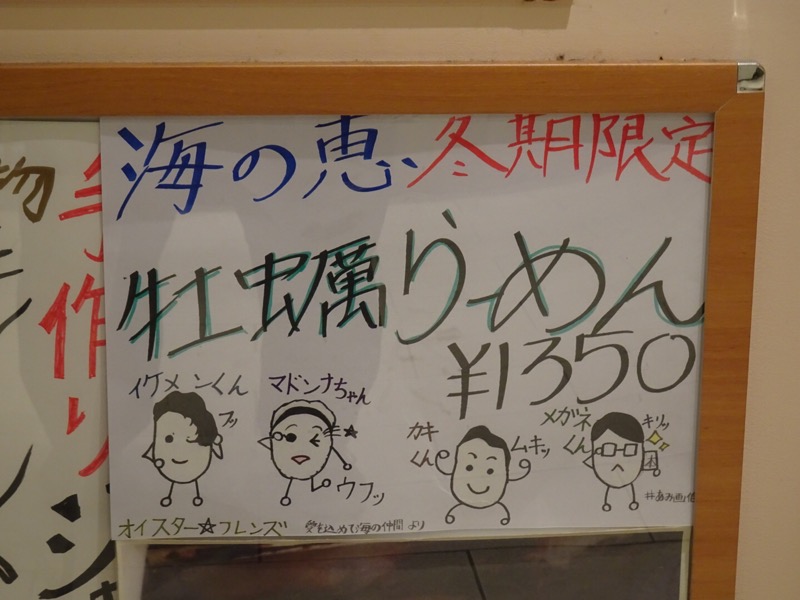 海の恵 冬期限定
牡蠣らーめん
¥1350
イケメンくん
フッ
マドンナちゃん
ウフッ
カキくん
ムキッ
メガネくん
キリッ
本
オイスター☆フレンズ
愛を込めて海の仲間より
物
手作り